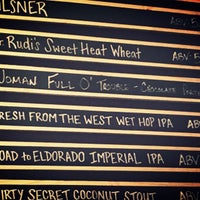 ILSNER ABV:
Rudi's Sweet Heat Wheat ABV:
Woman Full O' Trouble - Chocolate
RESH FROM THE WEST WET HOP IPA ABV
OAD TO ELDORADO IMPERIAL IPA ABV
IRTY SECRET COCONUT STOUT ABV